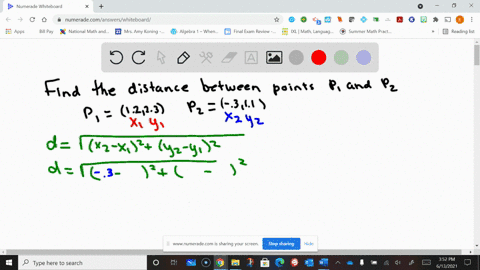 Numerade Whiteboard
numerade.com/answers/whiteboard/
Apps
Bill Pay
National Math and
Mrs. Amy Korning -
Algebra 1 - Whenen
Final Exam Review -
(XX.) Math, Languag...
Summer Math Pract...
Reading list
Find the distance between points P1 and P2
P1 = (1.2, 2.3) P2 = (-.3, 1.1)
x1 y1 x2 y2
d = √(x2-x1)²+(y2-y1)²
d = √(-.3- )²+( - )²
www.numerade.com is sharing your screen. Stop sharing Hide
Type here to search
3:52 PM
6/13/2021